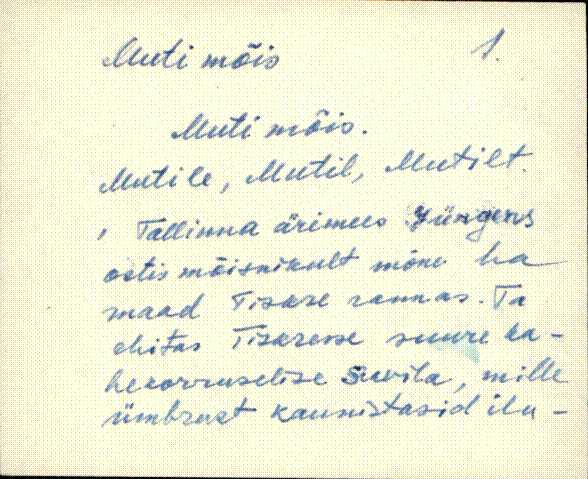 Muti mõis 1.
Muti mõis.
Mutile, Mutil, Mutilt.
, Tallinna ärimees Jüngens
ostis mõisnikult mõne ha
maad Tiskre rannas. Ta
ehitas Tiskresse suure ka-
hekorruselise suvila, mille
ümbrust kaunistasid ilu-